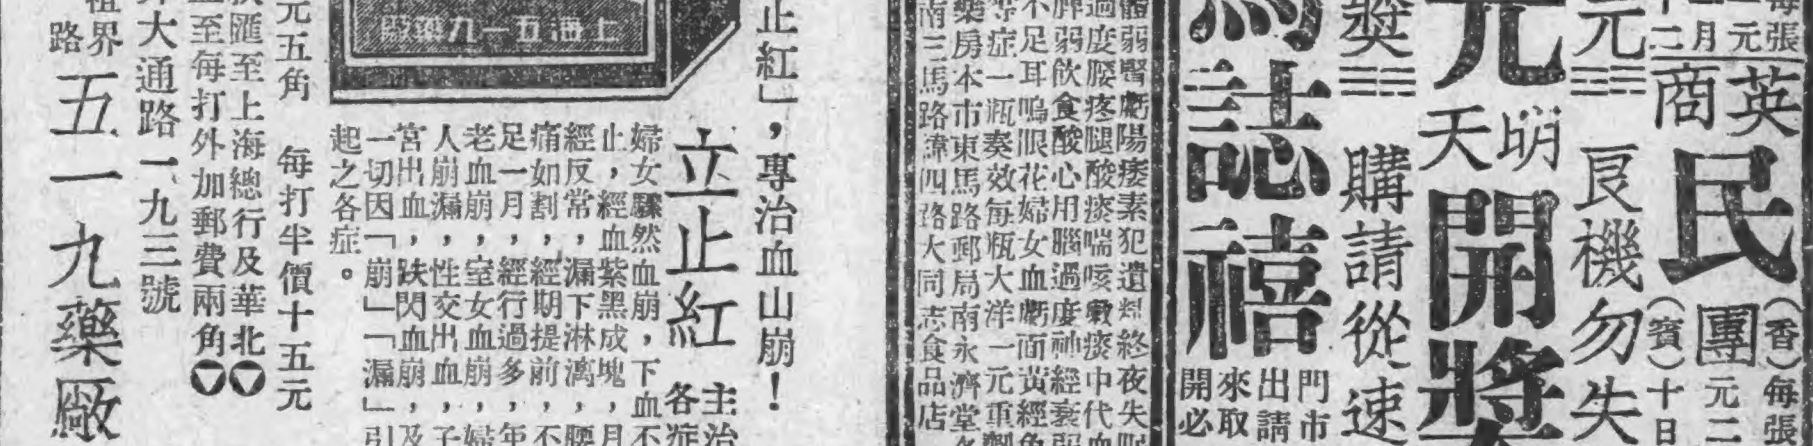 每張
一元
一月
十二
英
商
民
團
(香)每張
(賓)十日
元二
元
良機勿失
元
明
天
開獎
獎
購請從速
馬誌禧
門市
出請
來取
開必
體弱腎虧陽痿素犯遺
過度腰疼腿酸痰喘咳嗽痰中代血
脾弱飲食酸心用腦過度神經衰弱
不足耳鳴眼花婦女血虧面黃經
等症一瓶奏效每瓶大洋一元重
藥房本市東馬路郵局南永濟堂
南三馬路緯四路大同志食品店
止紅」,專治血山崩!
立止紅
主治
各症
婦女驟然血崩,下血不
止,經血紫黑成塊,月
經反常,漏下淋漓,腰
痛如割,經期提前,不
足一月,經行過多,年
老血崩,室女血崩,婦
人崩漏,性交出血,子
宮出血,跌閃血崩,及
一切因「崩」「漏」引
起之各症。
上海五一九藥廠
元五角 每打半價十五元
匯至上海總行及華北
至每打外加郵費兩角
大通路一九三號
租界
路
五一九藥廠